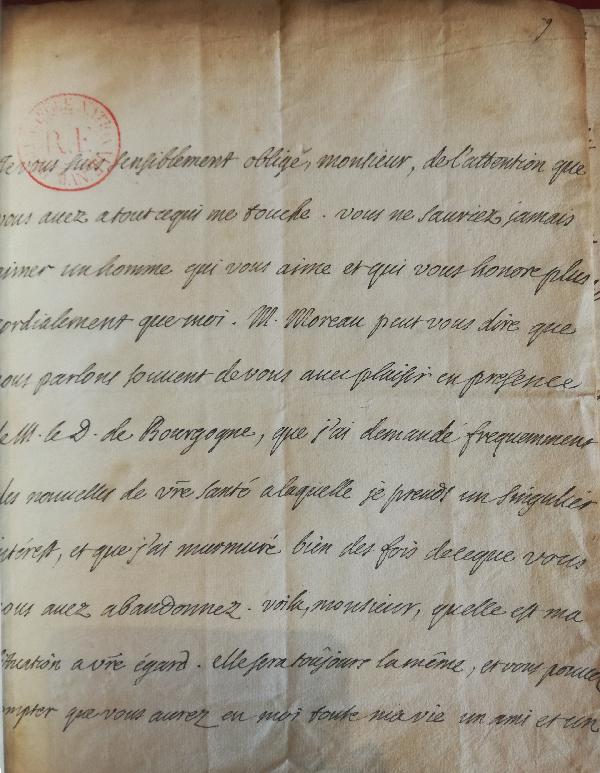 9
R.F.
Je vous suis sensiblement obligé, monsieur, de l'attention que
vous auez a tout cequi me touche. vous ne sauriez jamais
aimer un homme qui vous aime et qui vous honore plus
cordialement que moi. M. Moreau peut vous dire que
nous parlons souuent de vous auec plaisir en presence
de M. le D. de Bourgogne, que j'ai demandé frequamment
des nouuelles de vr̃e santé a laquelle je prends un singulier
intérest, et que j'ai murmuré bien des fois deceque vous
nous auez abandonnez. voila, monsieur, quelle est ma
situation a vr̃e égard. elle sera toûjours la même, et vous pouuez
compter que vous aurez en moi toute ma vie un ami et un